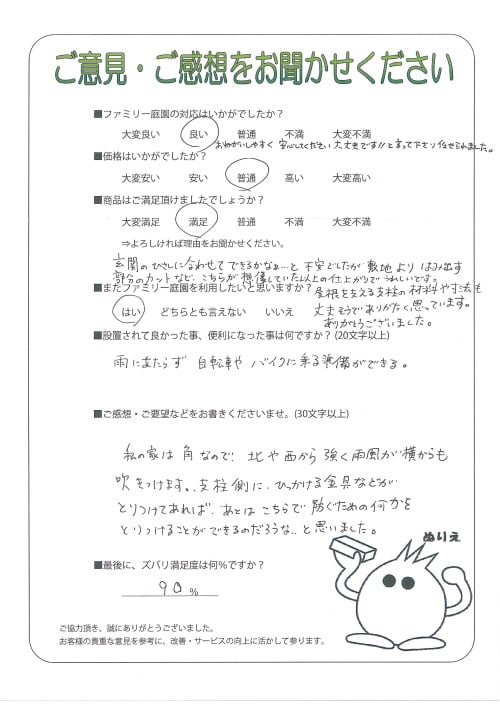 ご意見・ご感想をお聞かせください
■ファミリー庭園の対応はいかがでしたか?
大変良い 良い 普通 不満 大変不満
おねがいしやすく 安心してください 大丈夫です!! と言って下さり 任せられました。
■価格はいかがでしたか?
大変安い 安い 普通 高い 大変高い
■商品はご満足頂けましたでしょうか?
大変満足 満足 普通 不満 大変不満
⇒よろしければ理由をお聞かせください。
玄関のひさしに合わせてできるかなぁ…と不安でしたが 敷地より はみ出す
部分のカットなど、こちらが想像していた以上の仕上がりでうれしいです。
■またファミリー庭園を利用したいと思いますか?
屋根を支える支柱の材料や寸法も
はい どちらとも言えない いいえ
丈夫そうでありがたく思っています。
ありがとうございました。
■設置されて良かった事、便利になった事は何ですか? (20文字以上)
雨にあたらず 自転車や バイクに乗る準備ができる。
■ご感想・ご要望などをお書きくださいませ。(30文字以上)
私の家は角なので、北や西から強く雨風が横からも
吹きつけます。支柱側に、ひっかける金具などが
とりつけてあれば、あとはこちらで防ぐための何かを
とりつけることができるのだろうな..と思いました。
ぬりえ
■最後に、ズバリ満足度は何%ですか?
90 %
ご協力頂き、誠にありがとうございました。
お客様の貴重な意見を参考に、改善・サービスの向上に活かして参ります。